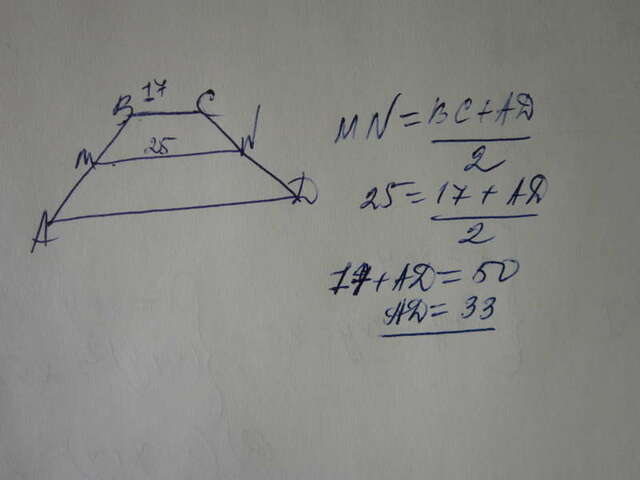 17
B C
25
M N
A D
MN = BC + AD / 2
25 = 17 + AD / 2
17 + AD = 50
AD = 33